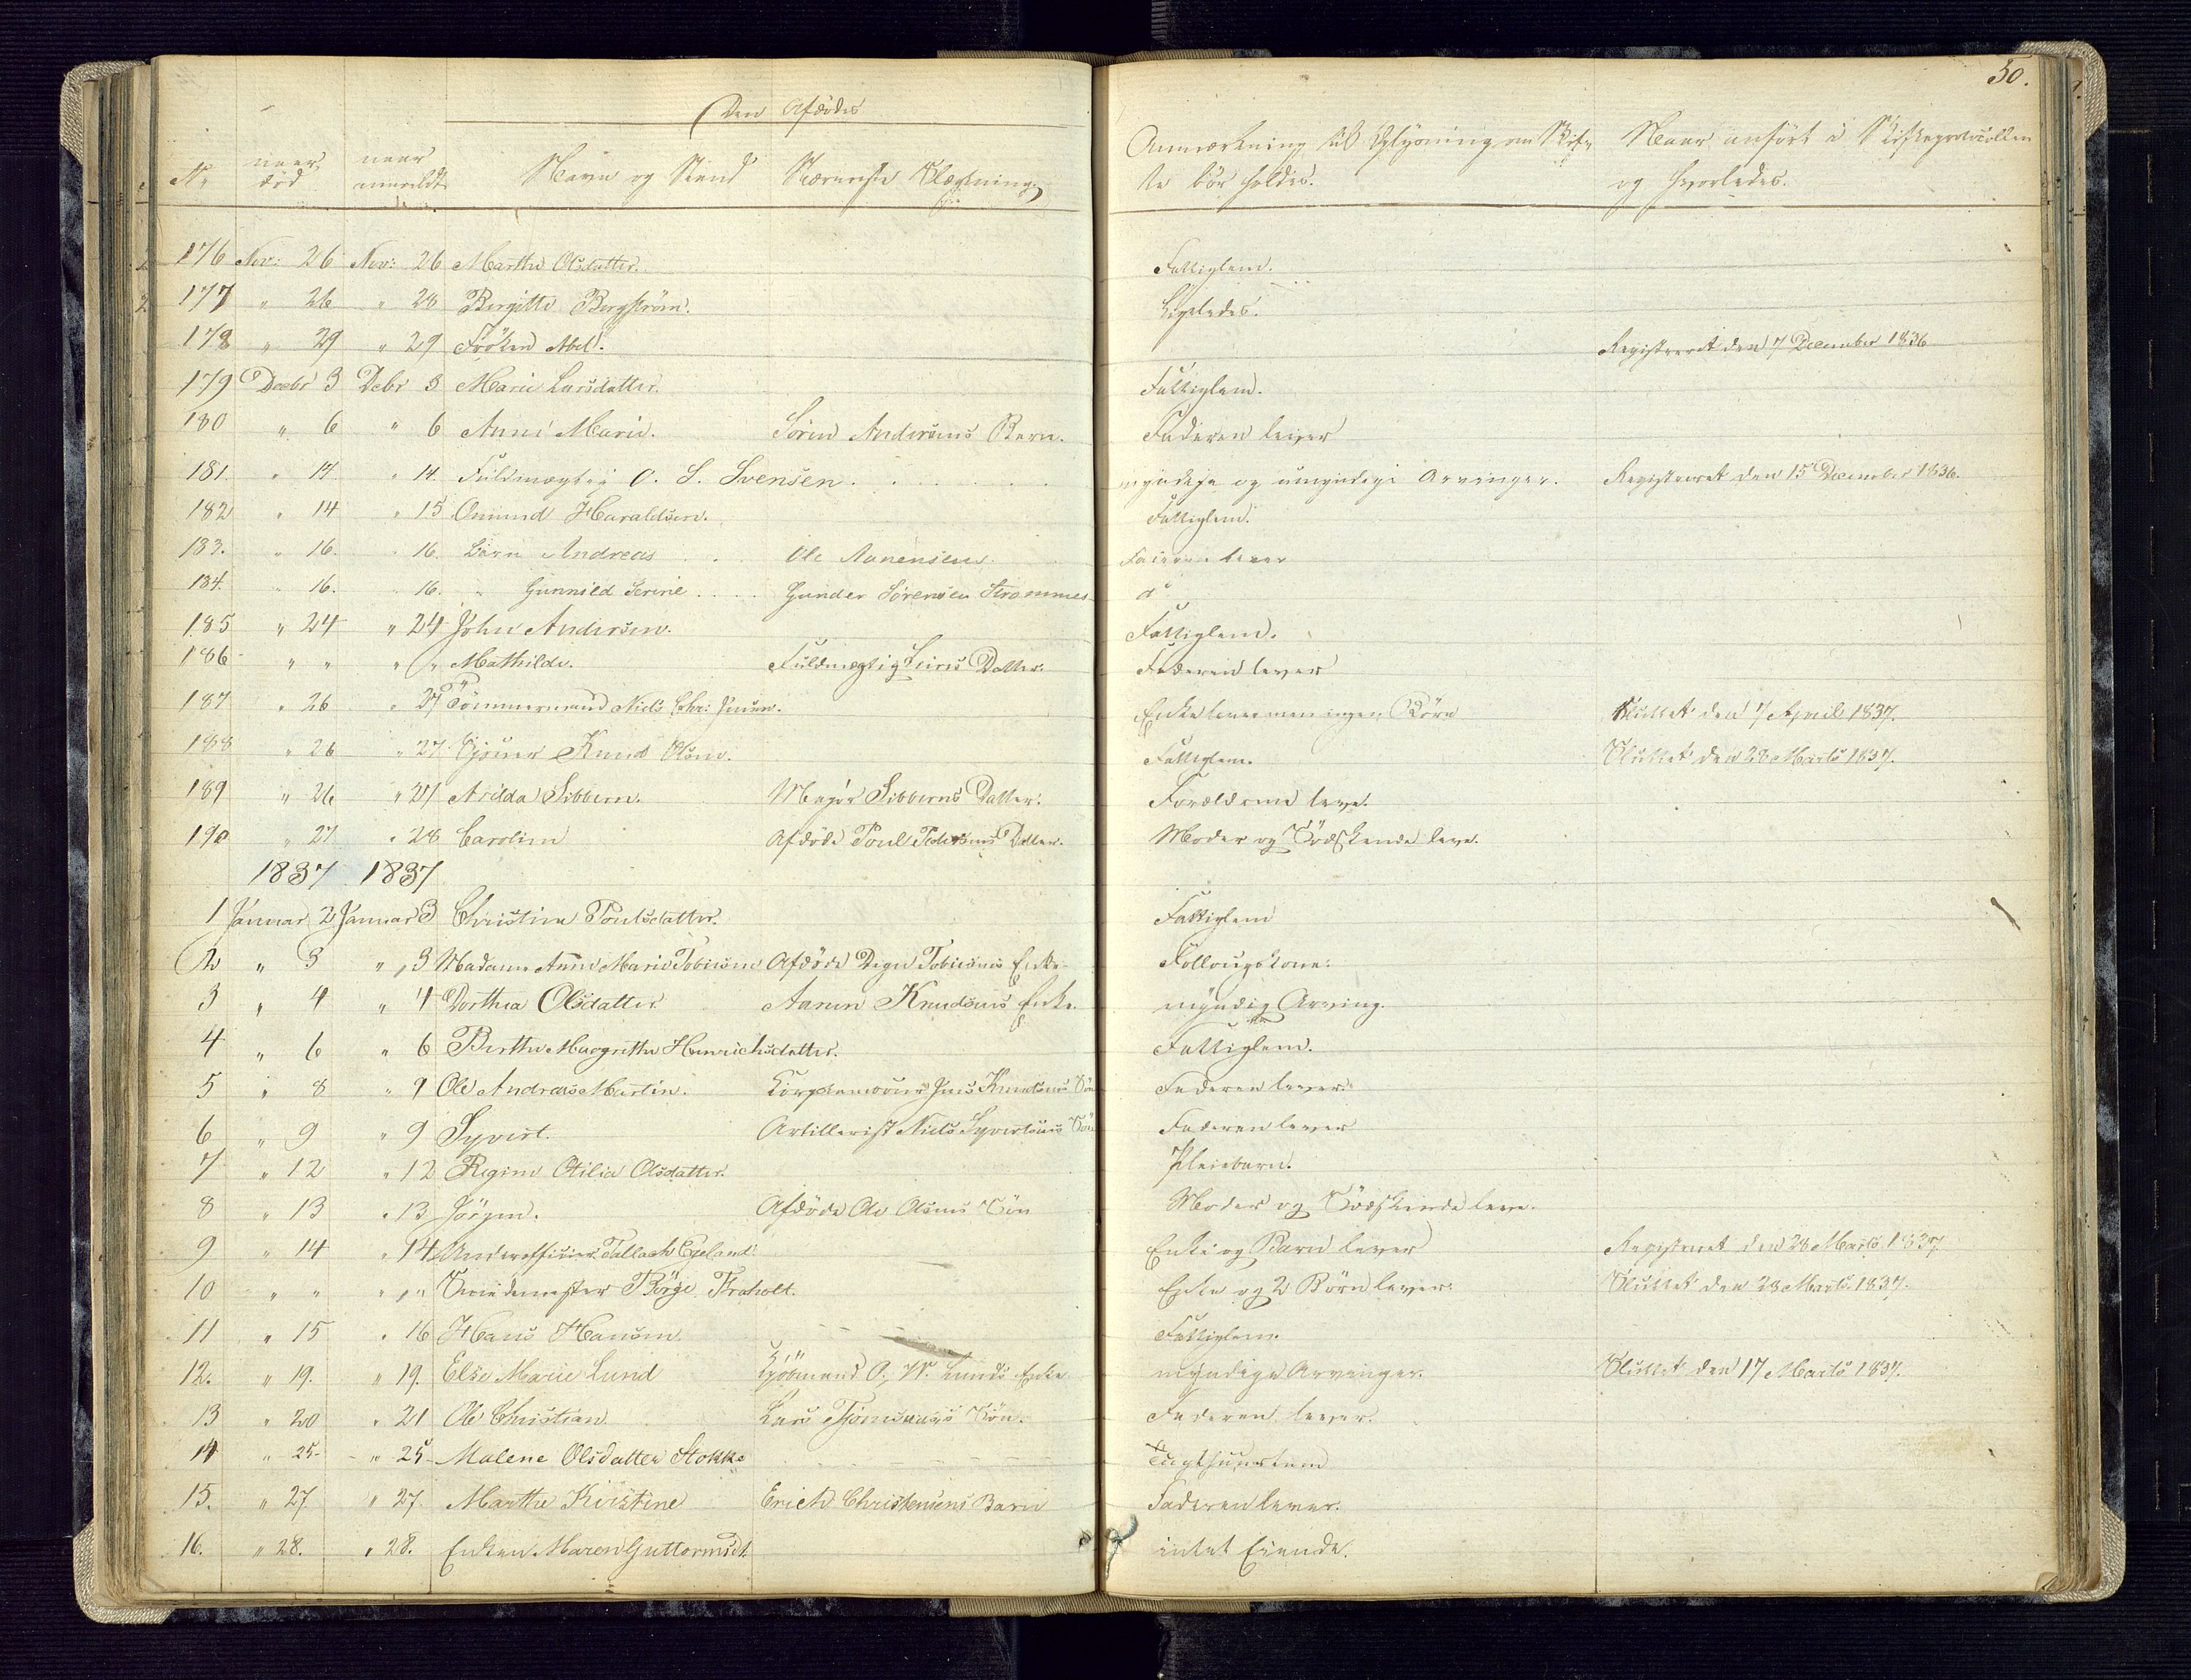 50.
Den Afdödes
No naar död naar anmeldt Navn og Stand Nærmeste Slægtning Anmærkning til Oplysning om Skif- Naar anført i Skifteprotocollen
te bör holdes. og hvorledes.
176 Nov: 26 Nov: 26 Marthe Olsdatter. Fattiglem.
177 " 26 " 28 Bergitte Bergstrøm. Ligeledes.
178 " 29 " 29 Frøken Abel. Registreret den 7 December 1836
179 Decbr 3 Debr 3 Marie Larsdatter. Fattiglem.
180 " 6 " 6 Anne Marie. Sören Andersens Barn. Faderen lever
181. " 14 " 14. Fuldmægtig O. S. Svensen. myndige og umyndige Arvinger. Registreret den 15 December 1836.
182 " 14 " 15 Omund Haraldsen. Fattiglem.
183. " 16. " 16. Barn Andreas Ole Aanensens Faderen lever
184. " 16. " 16. " Gunnild Serine Gunder Sörensen Strømmes do
185 " 24 " 24 John Andersen. Fattiglem.
186 " " " " Mathilde. Fuldmægtig Datter. Faderen lever
187 " 26 " 27 Tömmermand Niels Chr: Jensen. Enke lever men ingen Börn Sluttet den 7 April 1837.
188 " 26 " 27 Knud Olsen. Fattiglem. Sluttet den 28 Marts 1837.
189 " 26 " 27 Arilda Sibbern. Major Sibberns Datter. Forældrene leve.
190 " 27 " 28 Caroline Afdöde Poul Pedersens Datter. Moder og Södskende leve.
1837 1837
1 Januar 2 Januar 3 Christine Poulsdatter. Fattiglem
2 " 3 " 3 Madame Anne Marie Tobiesen Afdöde Degn Tobiesens Enke
3 " 4 " 4 Dorthea Olsdatter Aanen Knudsens Enke. myndig Arving.
4 " 6 " 6 Berthe Margrethe Henrichsdatter. Fattiglem.
5 " 8 " 9 Ole Andreas Martin. Jens Knudsens Sön Faderen lever.
6 " 9 " 9 Syvert. Artillerist Niels Syvertsens Sön Faderen lever
7 " 12 " 12 Regine Otilia Olsdatter. Pleiebarn.
8 " 13 " 13 Jörgen. Afdöde Ole Olsens Sön Moder og Södskende leve.
9 " 14 " 14 Underofficier Tallach Egeland: Enke og Barn lever Registreret den 28 Marts 1837.
10 " " " " Smedemester Börge Traholt. Enke og 2 Börn lever. Sluttet den 28 Marts 1837.
11 " 15 " 16 Hans Hansen. Fattiglem.
12. " 19. " 19. Else Marie Lund Kjöbmand O. N. Lunds Enke myndige Arvinger. Sluttet den 17 Marts 1837.
13 " 20 " 21 Ole Christian Lars Tjömsaas Sön. Faderen lever.
14 " 25 " 25 Malene Olsdatter Stokke Tugthuuslem
15. " 27 " 27. Marthe Kirstine Erich Christensens Barn Faderen lever.
16. " 28. " 28. Enken Maren Guttormsdt. intet Eiende.